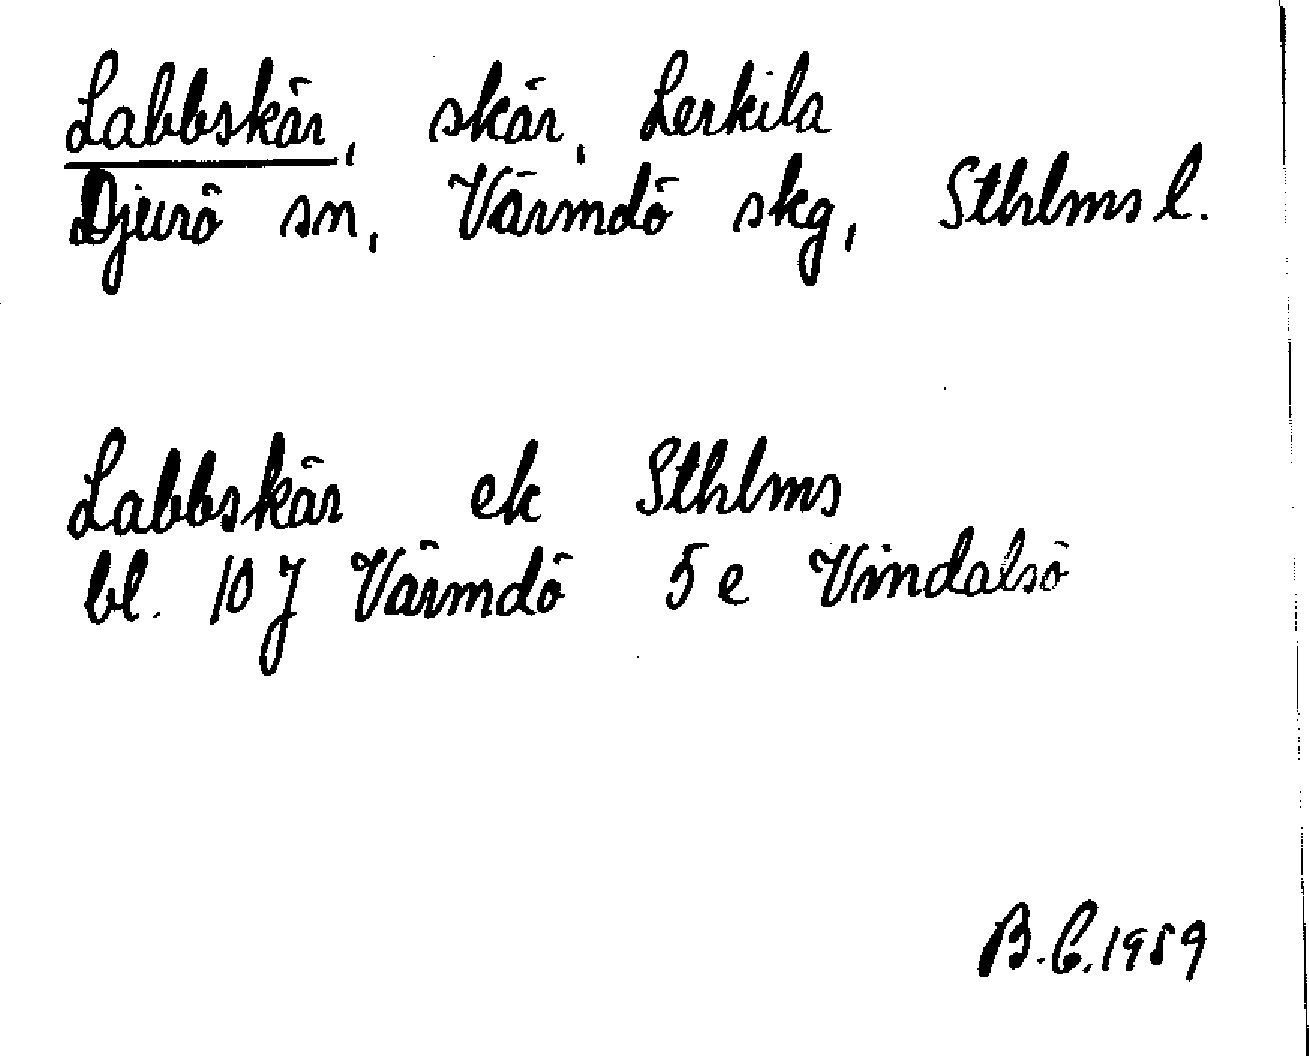 Labbskär, skär, Lerkila
Djurö sn, Värmdö skg, Sthlms l.
Labbskär ek Sthlms
bl. 10 J Värmdö 5 e Vindalsö
B.C. 1959